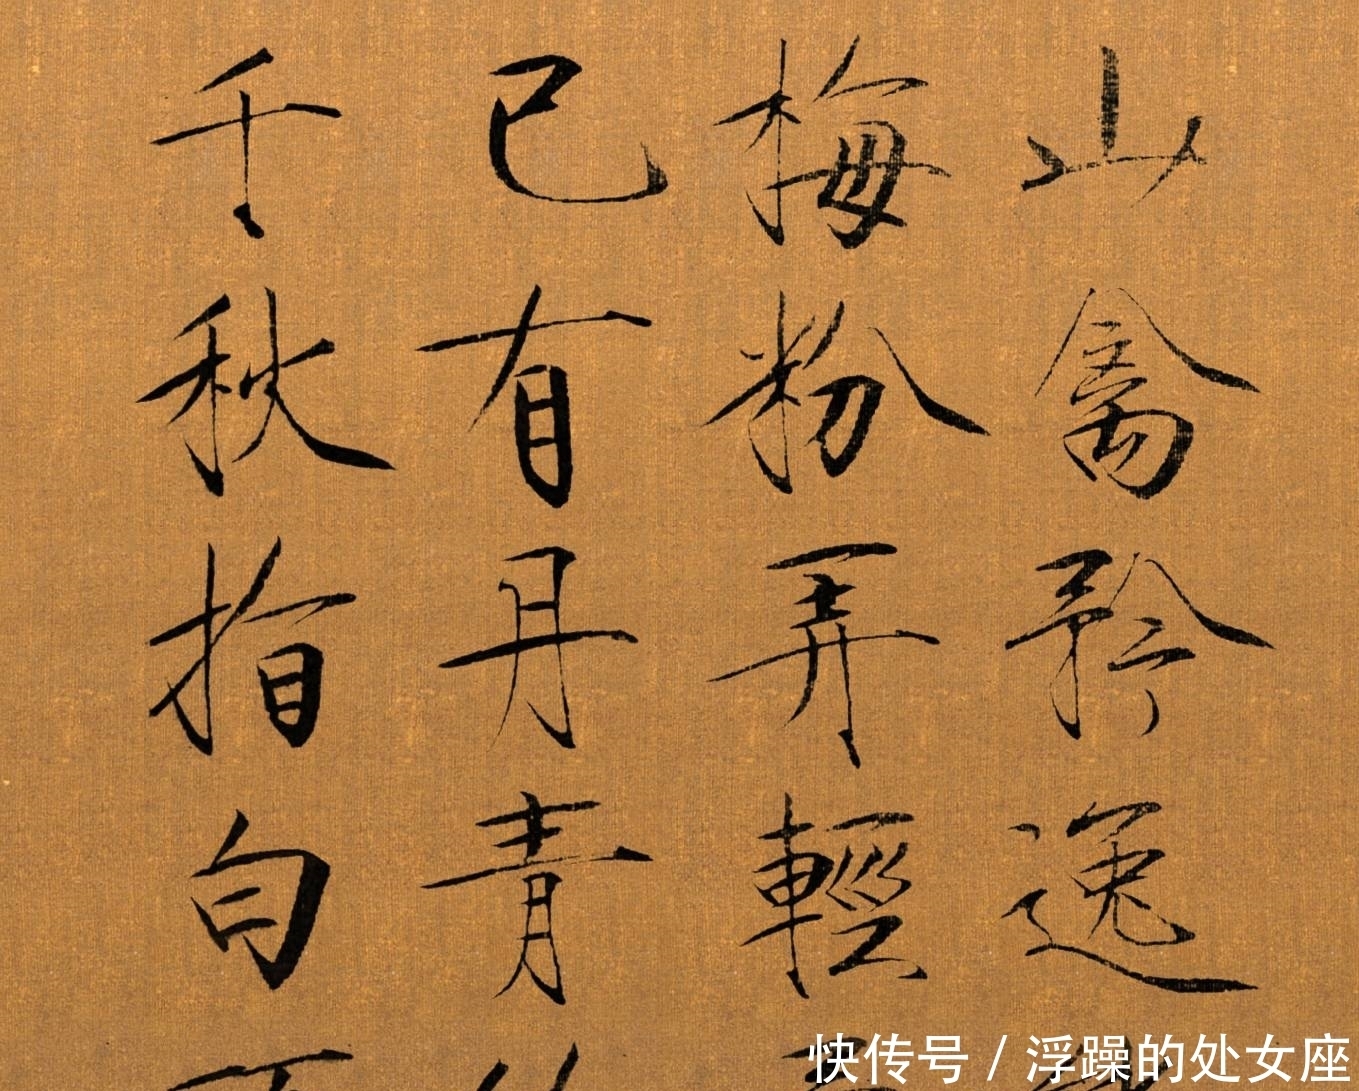 山禽矜逸
梅粉弄輕
已有丹青
千秋指白
快传号 / 浮躁的处女座